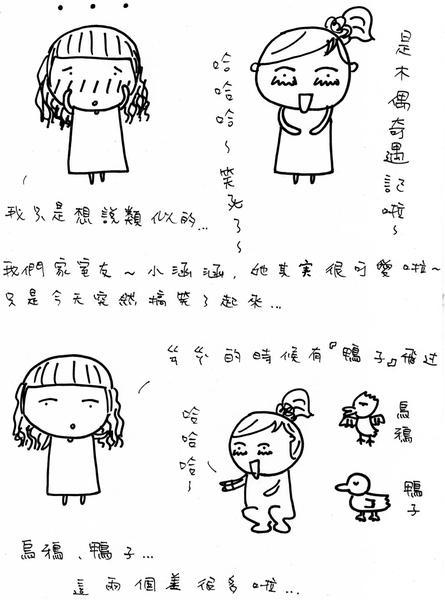 ...
是木偶奇遇記啦~
哈哈哈~笑死了~
我只是想說類似的...
我們家室友~小涵涵,她其實很可愛啦~
只是今天突然搞笑了起來...
ㄘㄘ的時候有『鴨子』飛過
哈哈哈~
烏鴉
鴨子
烏鴉、鴨子...
這兩個差很多啦...